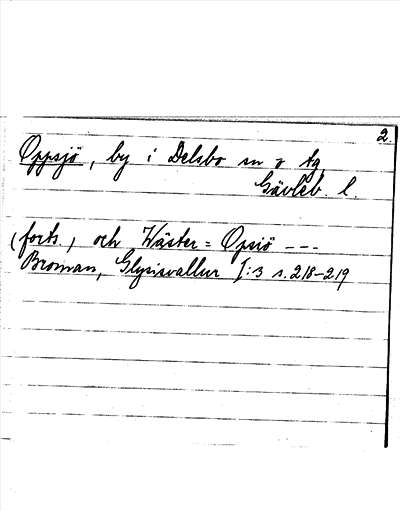 2.
Oppsjö, by i Delsbo sn o tg
Gävleb. l.
(forts.) och Wäster=Opsiö ---
Broman, Glysisvallur I:3 s. 218-219